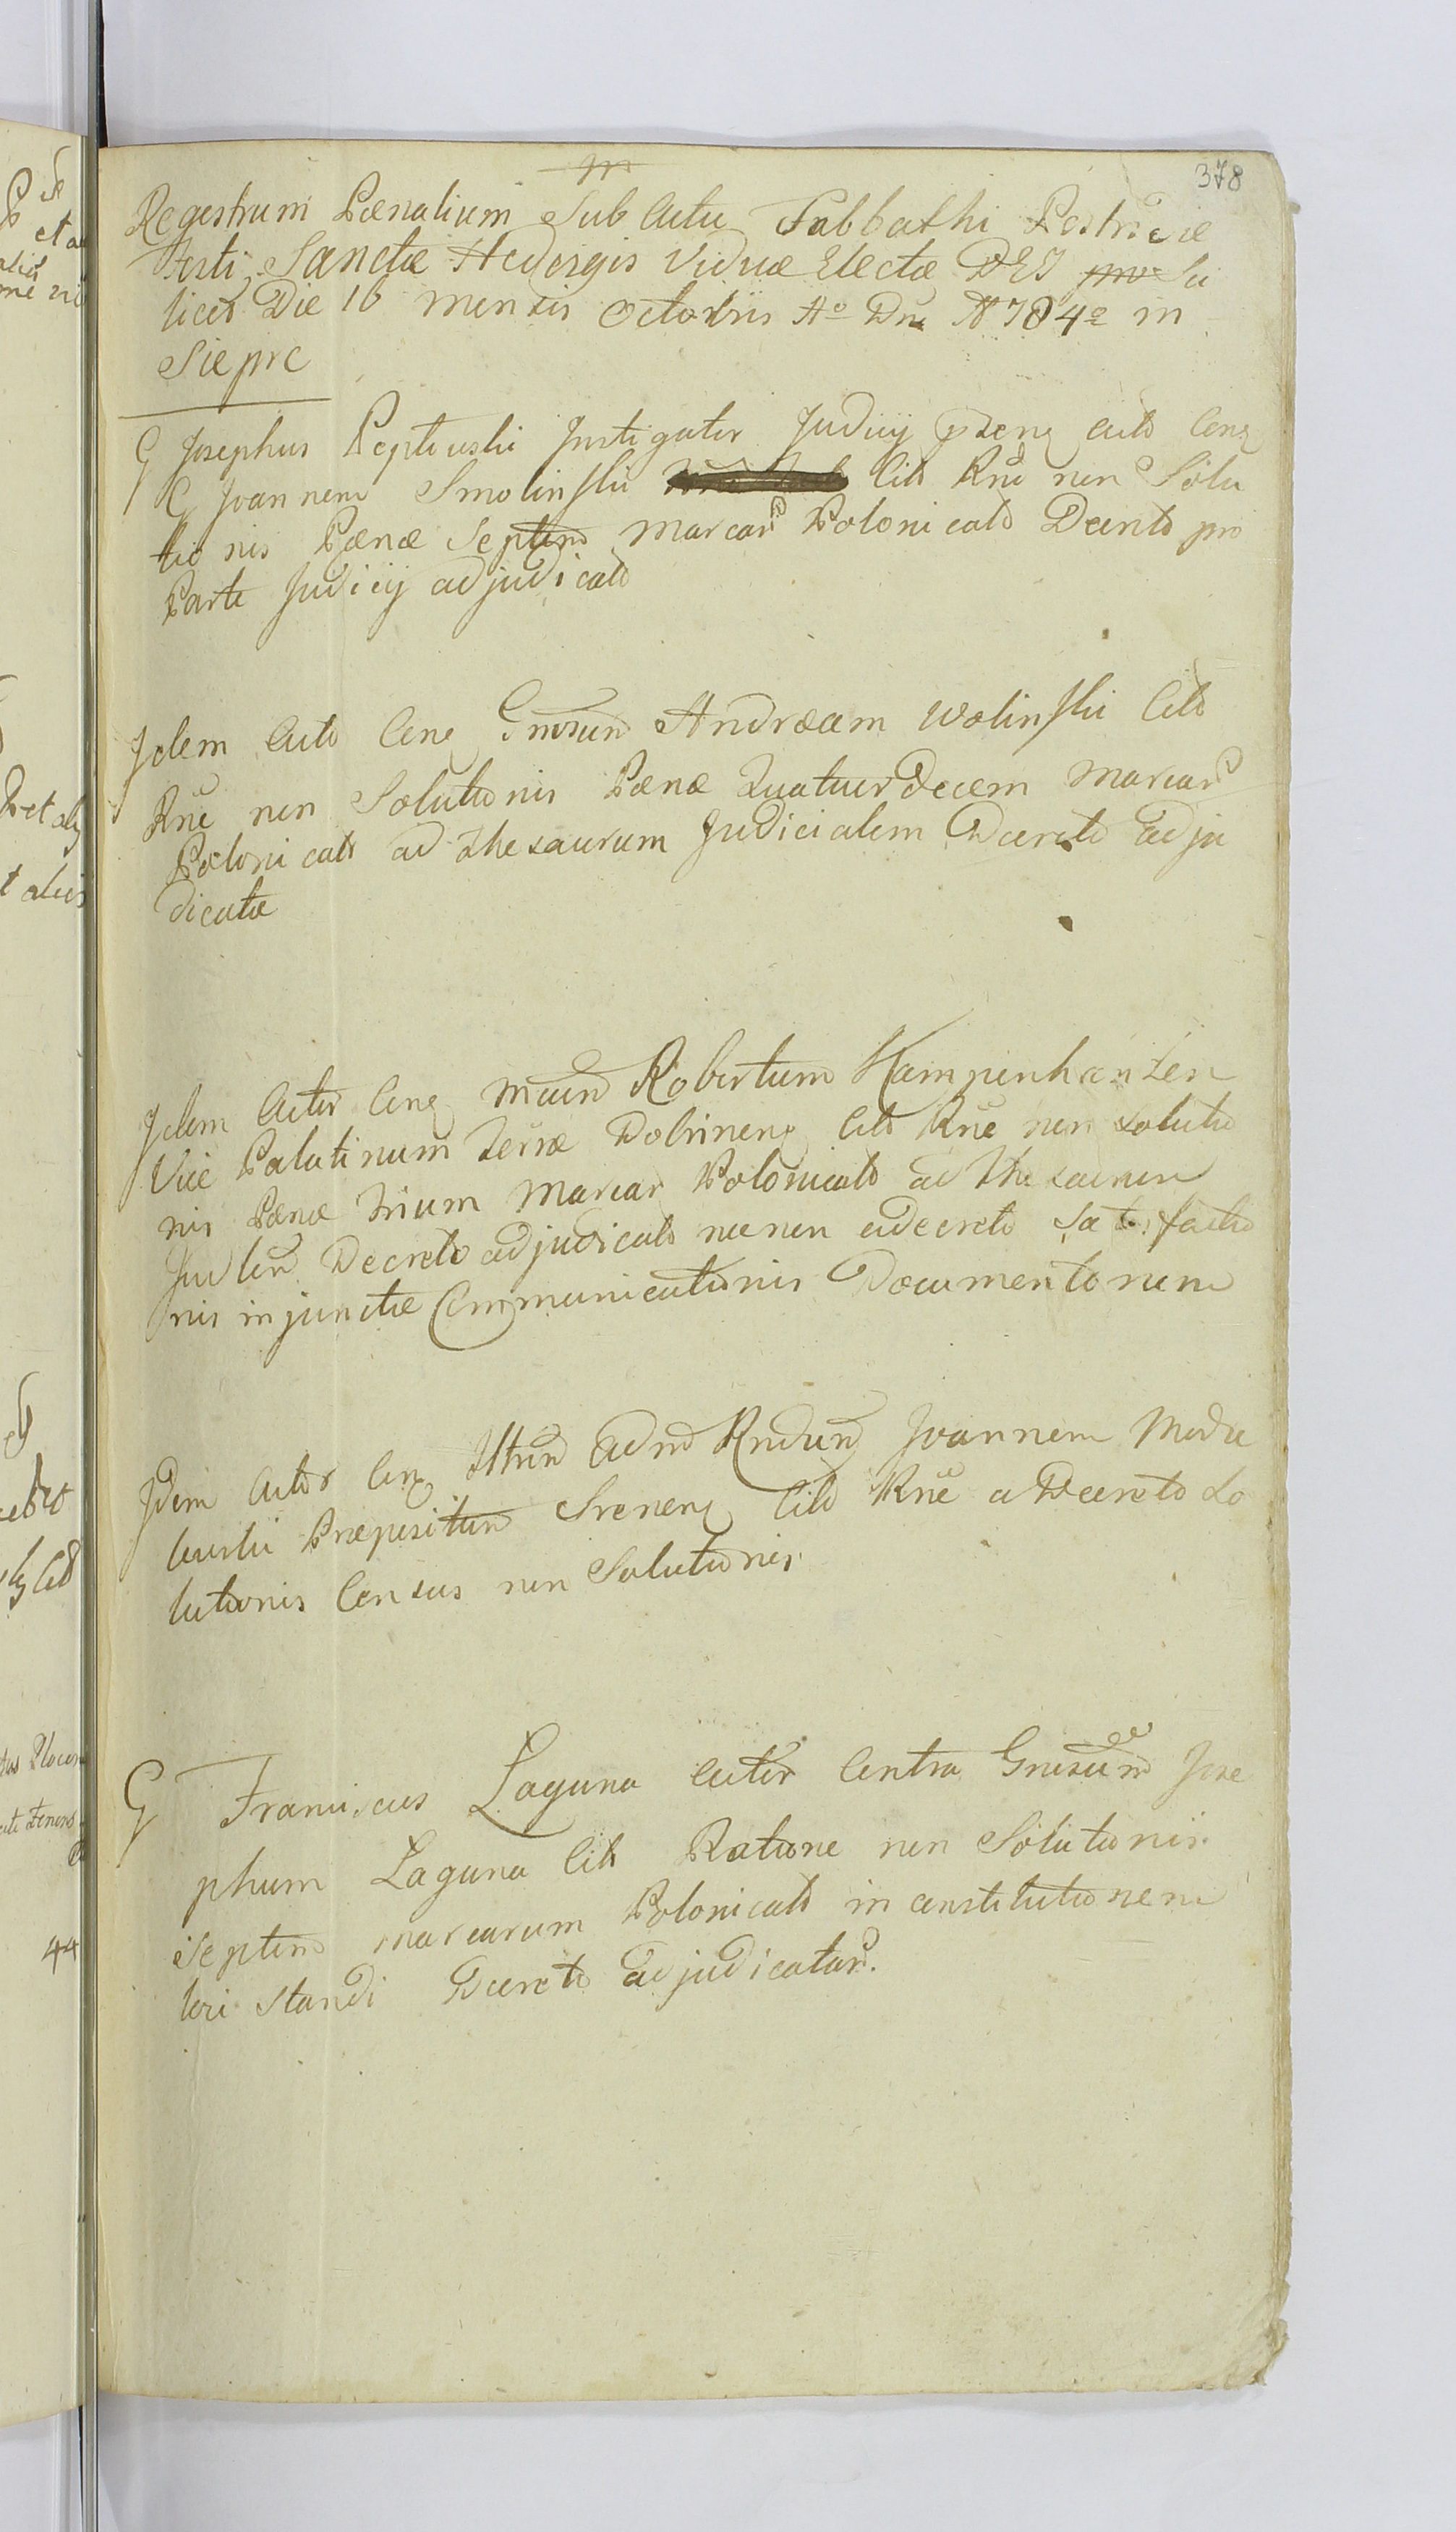 378
Registrum Pœnalium Sub Actu Sabbathi Postridie
Festi Sanctæ Hedvigis Viduæ Electæ DEI Sci
licet Die 16 Mensis Octobris Ao Dni 1784o in
Sieprc
G Josephus Instigator Judicij Actor Cong
G Joannem Smolinski Cito Rne non Solu
tionis Pænæ Septem Marcar Polonicals Decreto pro
Parte Judicij adjudicato
Idem Acto Cong Gnosum Andræam Wolinski Cito
Rne non Solutionis Pænæ Quatuor Decem Marcar
Polonicals ad Thesaurum Judicialem Decreto adju
dicatæ
Idem Actor Cong Mcum Robertum Kampenhauzen
Vice Palatinum Terræ Dobrineng Cito Rne non solutio
nis Pænæ Trium Marcar Polonicals ad Thesaurum
Judlem Decreto adjudicato necnon a decreto Satisfactio
nis injunctæ Communicationis Documentorum
Idem Actor Cong Illrem Adm Rndum Joannem
Præpositum Sreneng Cito Rne a Decreto So
lutionis Census non Solutionis
G Franciscus Laguna Actor Contra Gnosum Jose
phum Laguna Cito Ratione non Solutionis
Septem marcarum Polonicals in constitutionem
lori standi Decreto adjudicatar.
44